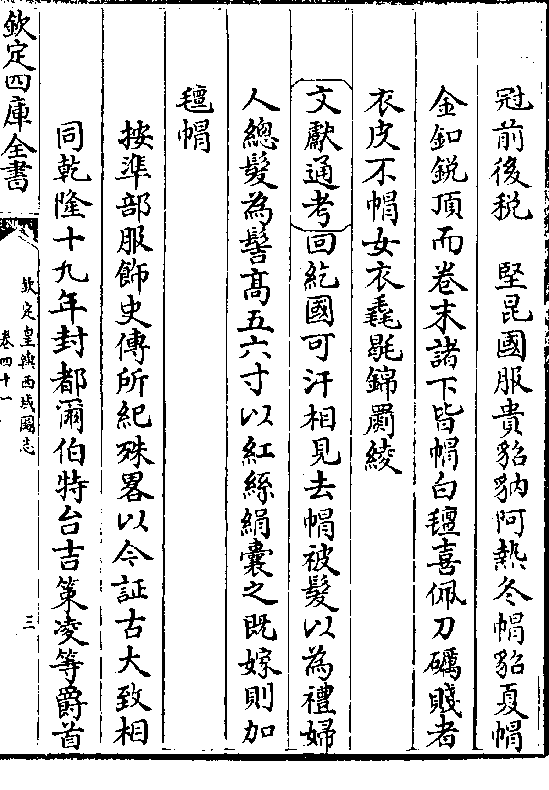 冠前後税　堅昆國服貴貂豽阿熱冬帽貂夏帽
金釦銳頂而卷末諸下皆帽白氊喜佩刀礪賤者
衣皮不帽女衣毳毼錦罽綾
文獻通考回紇國可汗相見去帽被髮以為禮婦
人總髮為髻高五六寸以紅絲絹囊之既嫁則加
氊帽
按準部服飾史傳所紀殊畧以今証古大致相
同乾隆十九年封都爾伯特台吉策凌等爵首
欽定四庫全書
欽定皇輿西域圖志
卷四十一
三